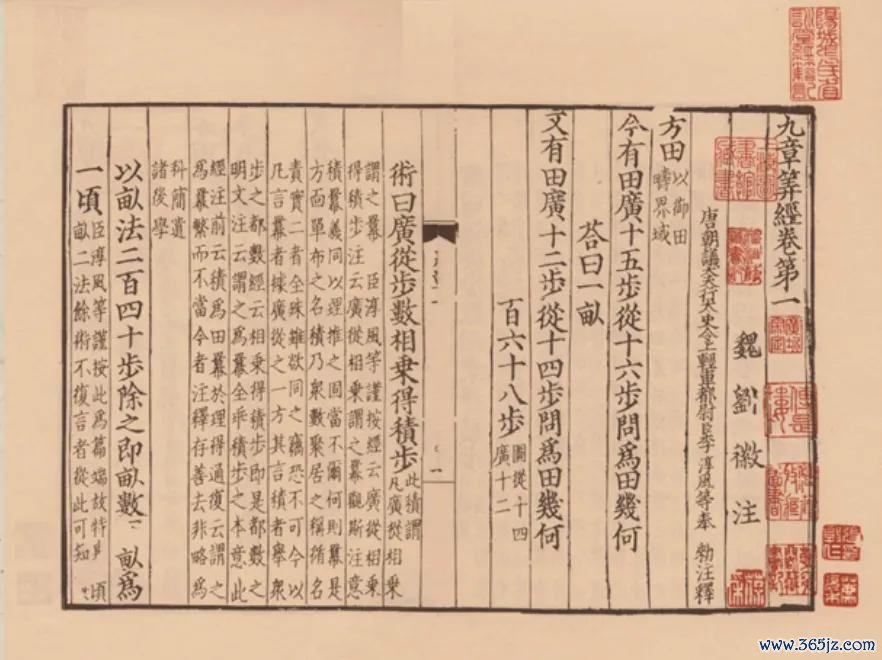 九章筭經卷第一
魏劉徽注
唐朝議大夫行太史令上輕車都尉臣李淳風等奉 勑注釋
方田 以御田
疇界域
今有田廣十五步從十六步問爲田幾何
荅曰一畝
又有田廣十二步從十四步問爲田幾何
百六十八步 圖從十四
廣十二
術曰廣從步數相乗得積步 此積謂
凡廣從相乗
謂之冪 臣淳風等謹按經云廣從相乗
得積步注云廣從相乗謂之冪觀斯注意
積冪義同以理推之固當不爾何則冪是
方面單布之名積乃衆數聚居之稱循名
責實二者全殊雖欲同之竊恐不可今以
凡言冪者據廣從之一方其言積者舉衆
步之都數經云相乗得積步即是都數之
明文注云謂之爲冪全乖積步之本意此
經注前云積爲田冪於理得通復云謂之
爲冪繁而不當今者注釋存善去非略爲
科簡遺
諸後學
以畝法二百四十步除之即畝數 畝爲
一頃 臣淳風等謹按此爲篇端故特 頃
畝二法餘術不復言者從此可知
www.365jz.com